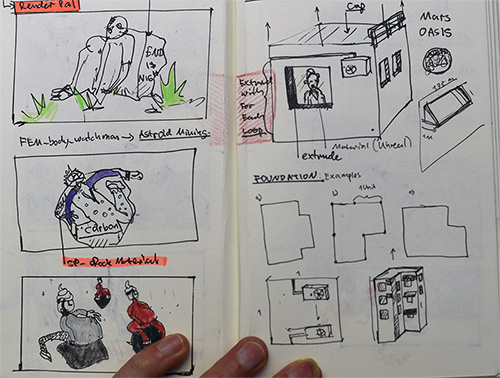 Render Pal
END
IS
NIGH
FEM_body_watchman → Astroid Mining
Carbon
SP-Rock Material
Cap
Extrude
with
For
Each
Loop
extrude
Material (Unreal)
Mars
OASIS
FOUNDATION: Examples
1 Unit